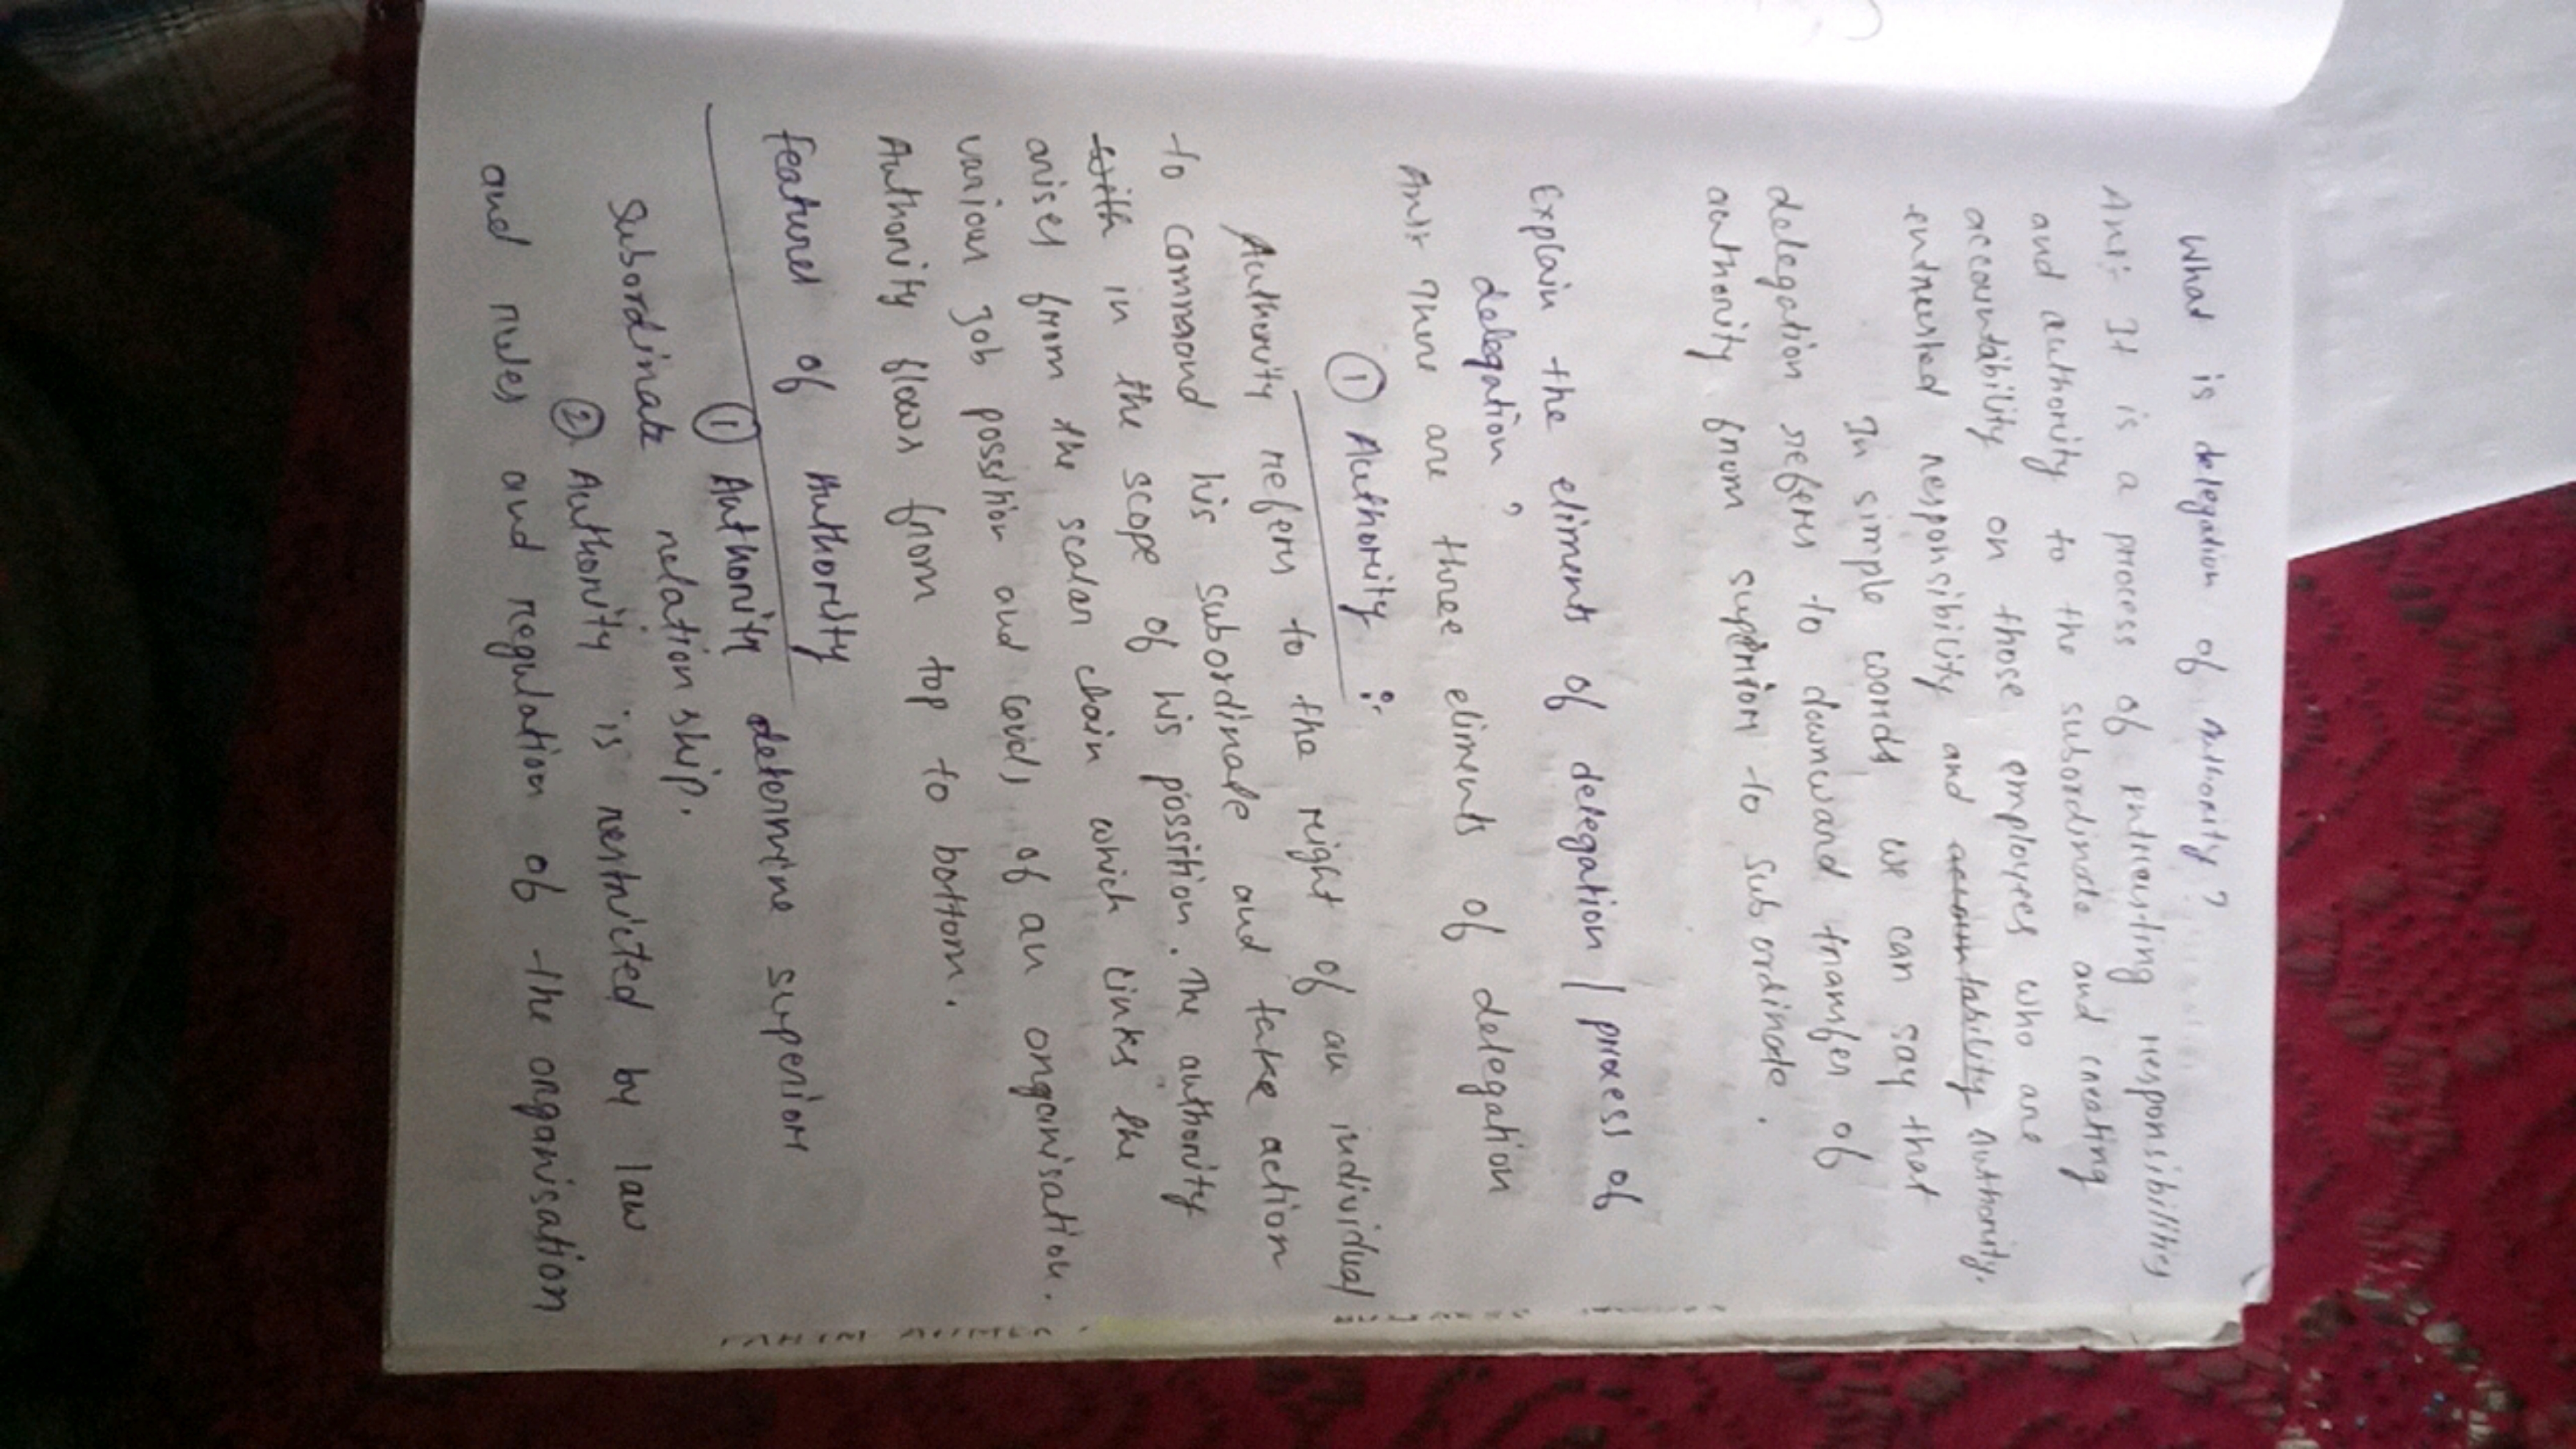 What is delegation of Authority?
Ans:- It is a process of entreusting responsibilities
and authority to the subordinate and creating
accountability on those employees who are
entreusted responsibility and accountability authority.
In simple words we can say that
delegation refers to downward transfer of
authority from superior to subordinate.
Explain the eliments of delegation / process of
delegation ?
Ans:- There are three eliments of delegation
① Authority :-
Authority refers to the right of an individual
to command his subordinate and take action
with in the scope of his possition. The authority
arises from the scalar chain which links the
various Job possition and levels of an organisation.
Authority flows from top to bottom.
features of Authority
① Authority determine superior
Subordinate relationship.
② Authority is restricted by law
and rules and regulation of the organisation